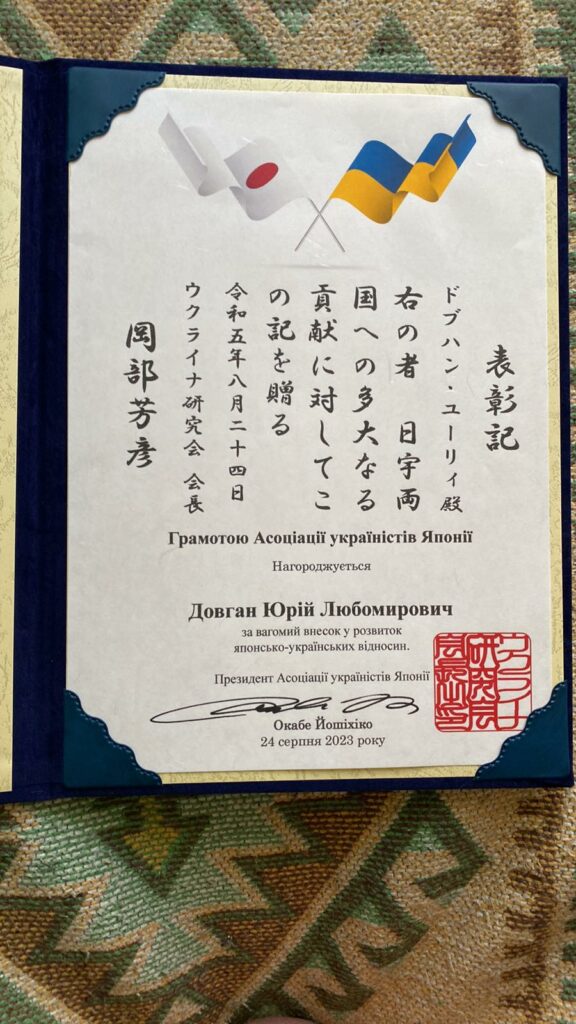 表彰記
ドブハン・ユーリィ殿
右の者　日宇両
国への多大なる
貢献に対してこ
の記を贈る
令和五年八月二十四日
ウクライナ研究会　会長
岡部芳彦
Грамотою Асоціації україністів Японії
Нагороджується
Довган Юрій Любомирович
за вагомий внесок у розвиток
японсько-українських відносин.
Президент Асоціації україністів Японії
Окабе Йошіхіко
24 серпня 2023 року